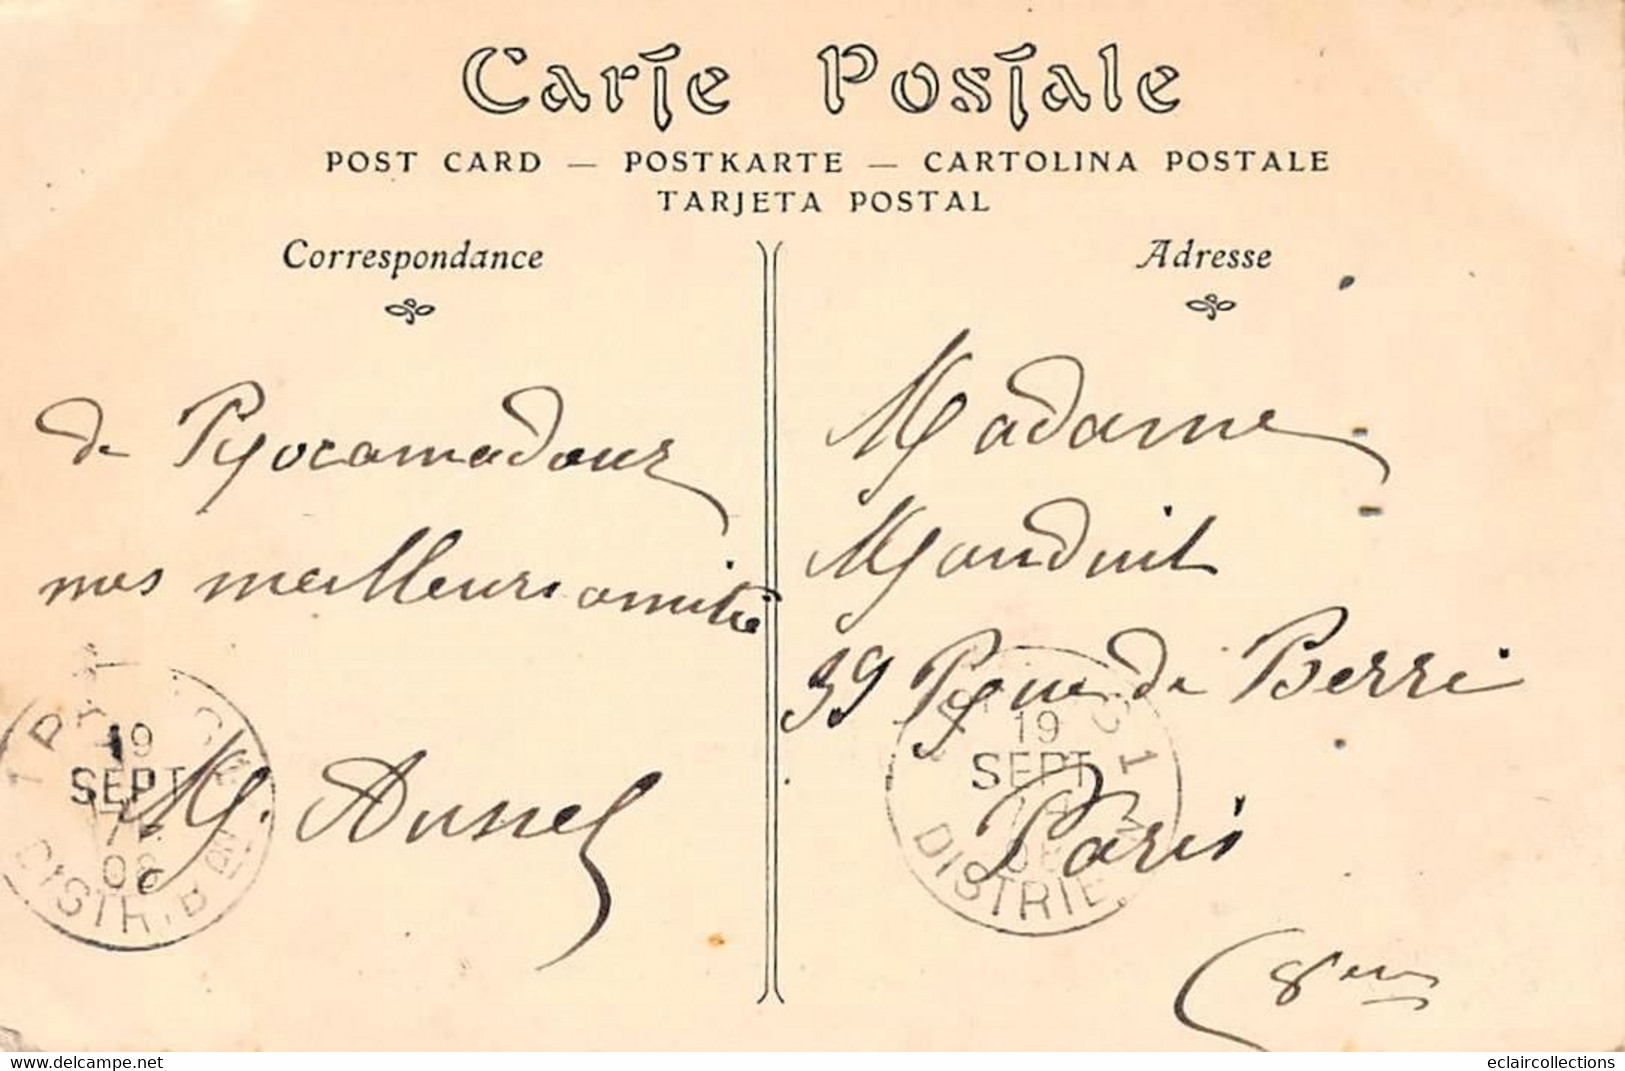 Carte Postale
POST CARD — POSTKARTE — CARTOLINA POSTALE
TARJETA POSTAL
Correspondance
Adresse
de Rocamadour
nos meilleurs amitié
Madame
Mauduit
39 Rue de Berri
Paris
(8em
19
SEPT
08
DISTRIB
19
SEPT
DISTRIB
www.delcampe.net
eclaircollections